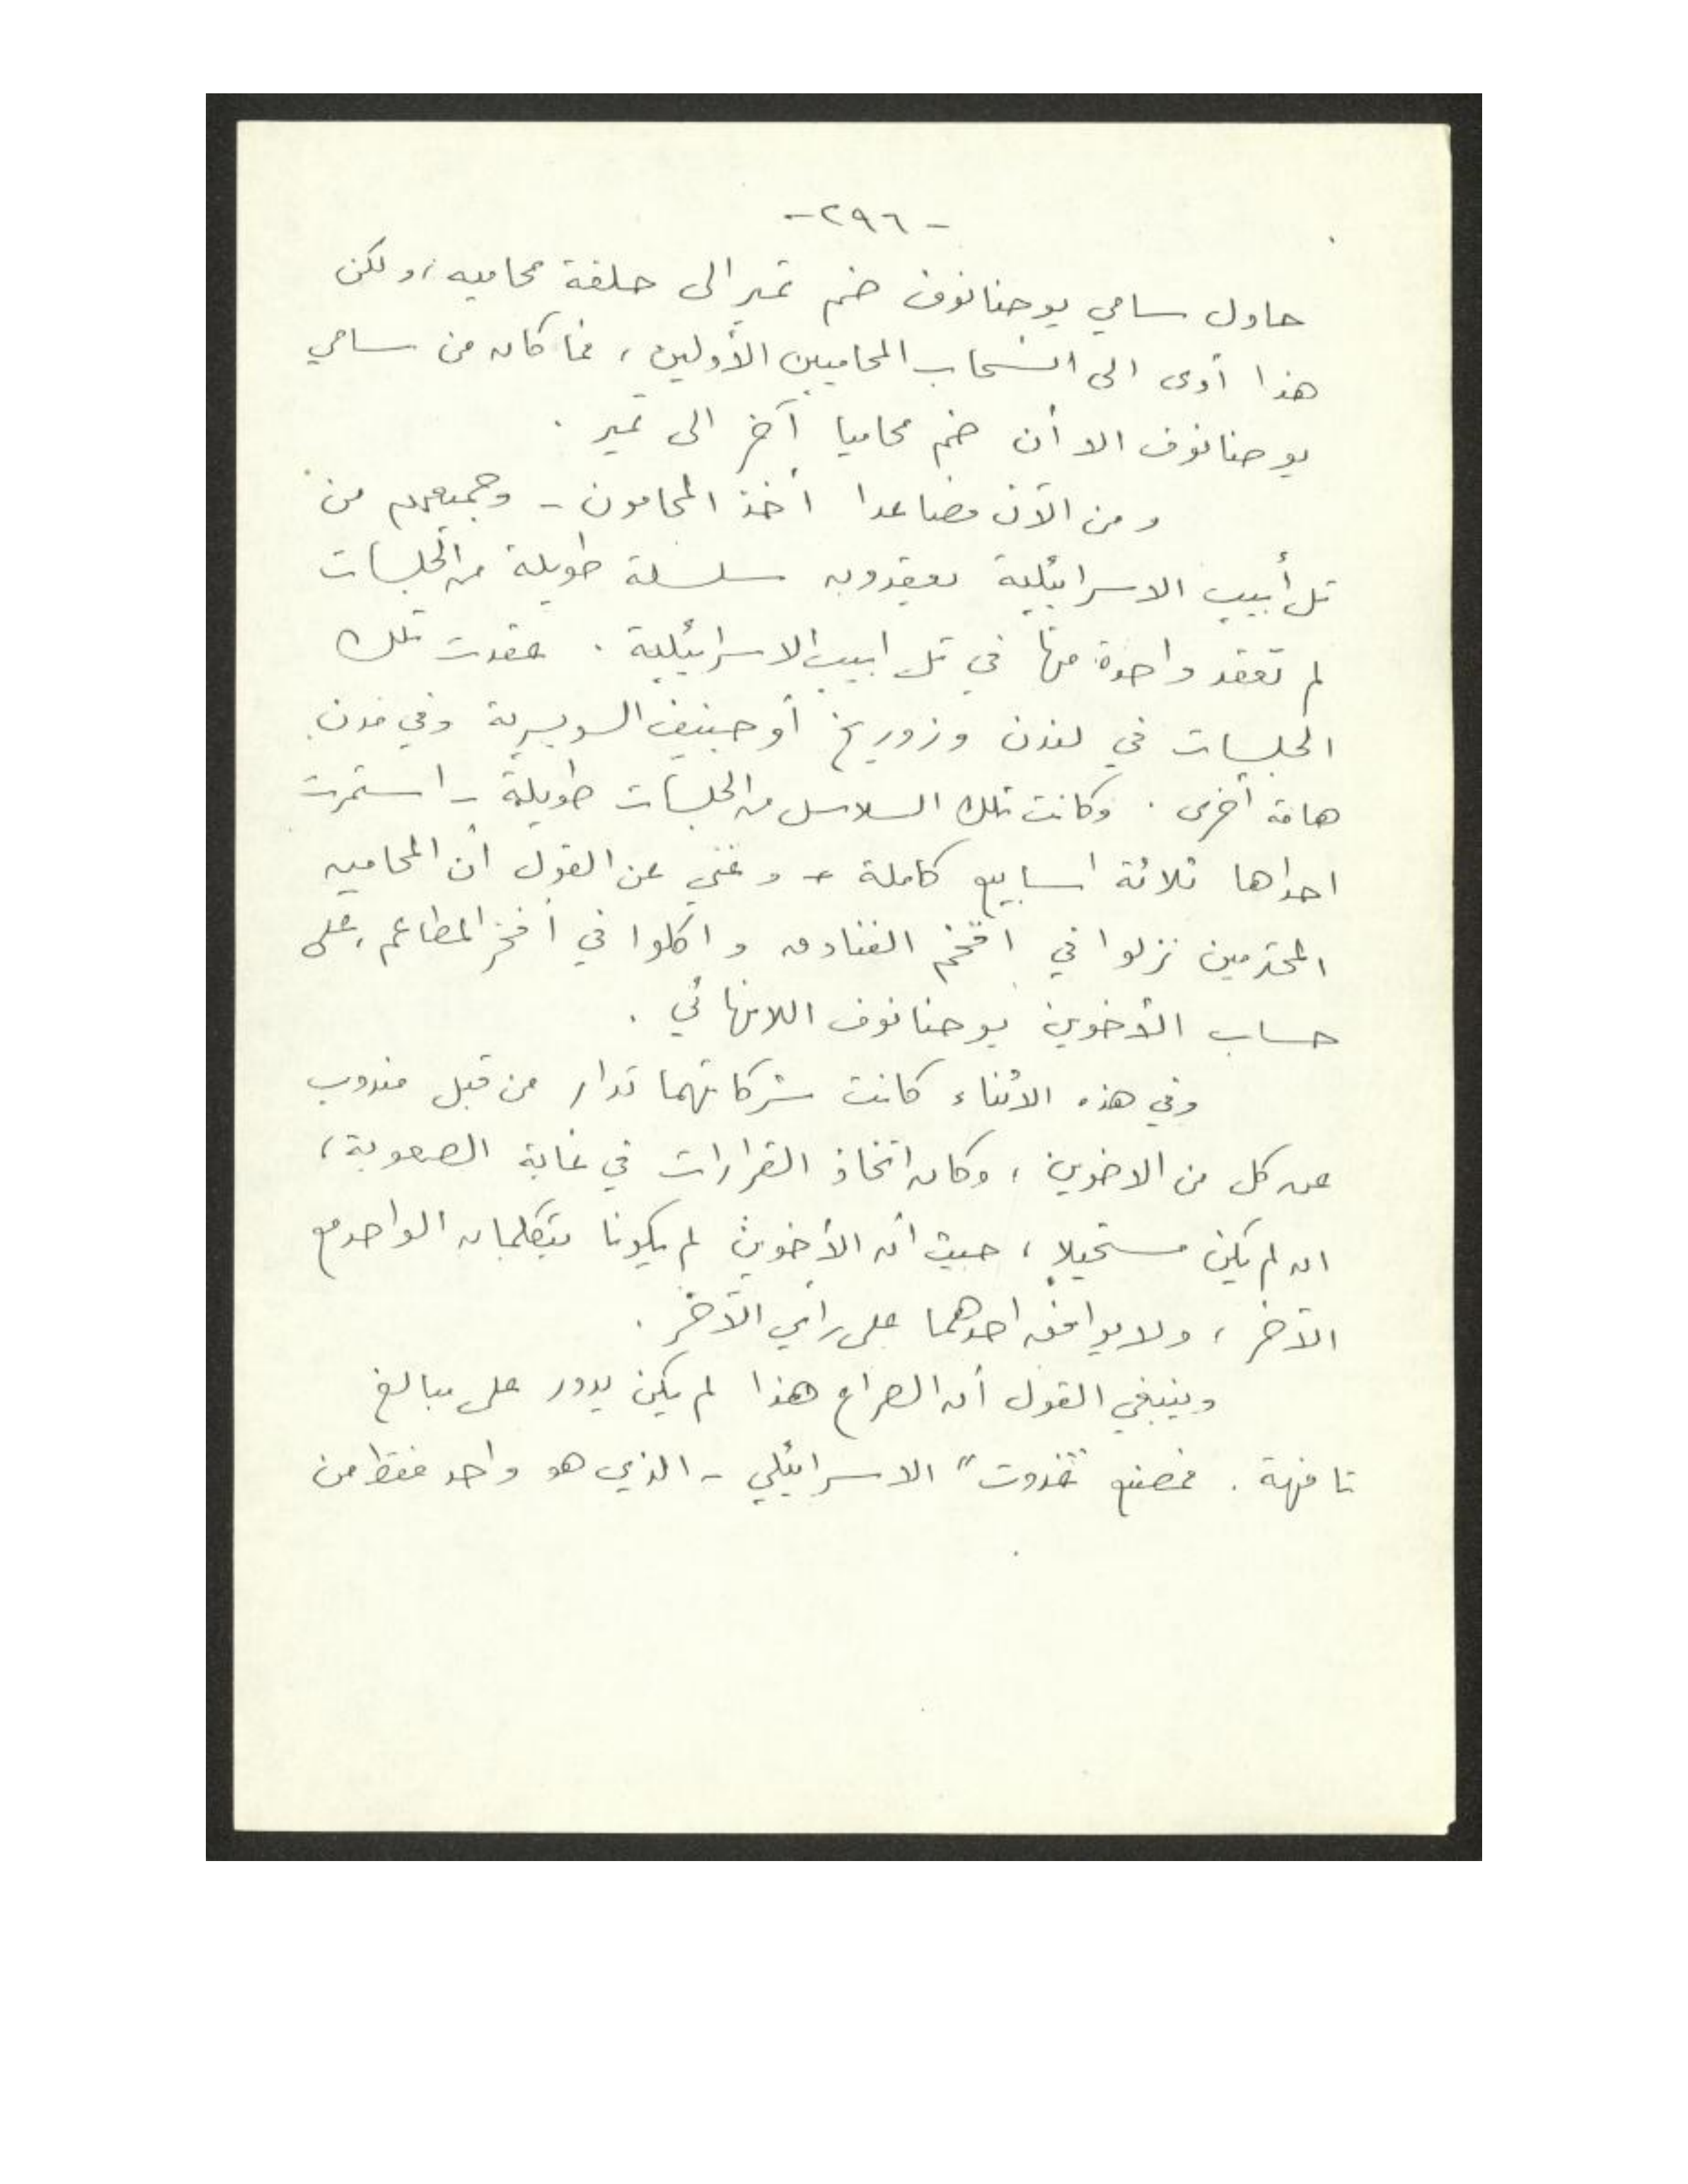 -٢٩٦-
حاول سامي يوحنانوف ضم تمير الى حلقة محاميه ، ولكن
هذا أدى الى انسحاب المحاميين الأولين ، فما كان من سامي
يوحنانوف الا أن ضم محاميا آخر الى تمير .
ومن الآن فصاعدا أخذ المحامون - وجميعهم من
تل أبيب الاسرائيلية يعقدون سلسلة طويلة من الجلسات
لم تعقد واحدة منها في تل ابيب الاسرائيلية . عقدت تلك
الجلسات في لندن وزوريخ أو جنيف السويسرية وفي مدن
هامة أخرى . وكانت تلك السلاسل من الجلسات طويلة - استمرت
احداها ثلاثة اسابيع كاملة - وغني عن القول أن المحامين
المحترمين نزلوا في افخم الفنادق واكلوا في أفخر المطاعم ، على
حساب الأخوين يوحنانوف اللانهائي .
وفي هذه الاثناء كانت شركاتهما تدار من قبل مندوب
عن كل من الاخوين ، وكان اتخاذ القرارات في غاية الصعوبة ،
ان لم يكن مستحيلا ، حيث أن الأخوين لم يكونا يتكلمان الواحد مع
الآخر ، ولا يوافق احدهما على رأي الآخر .
وينبغي القول أن الصراع هذا لم يكن يدور على مبالغ
تافهة . فمصنع "تغذوت" الاسرائيلي - الذي هو واحد فقط من